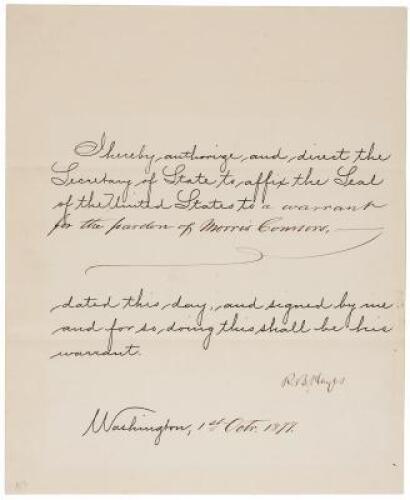 I hereby authorize and direct the
Secretary of State to affix the Seal
of the United States to a warrant
for the pardon of Morris
dated this day, and signed by me
and for so doing this shall be his
warrant.
R. B. Hayes
Washington, 1st Octr. 1877.